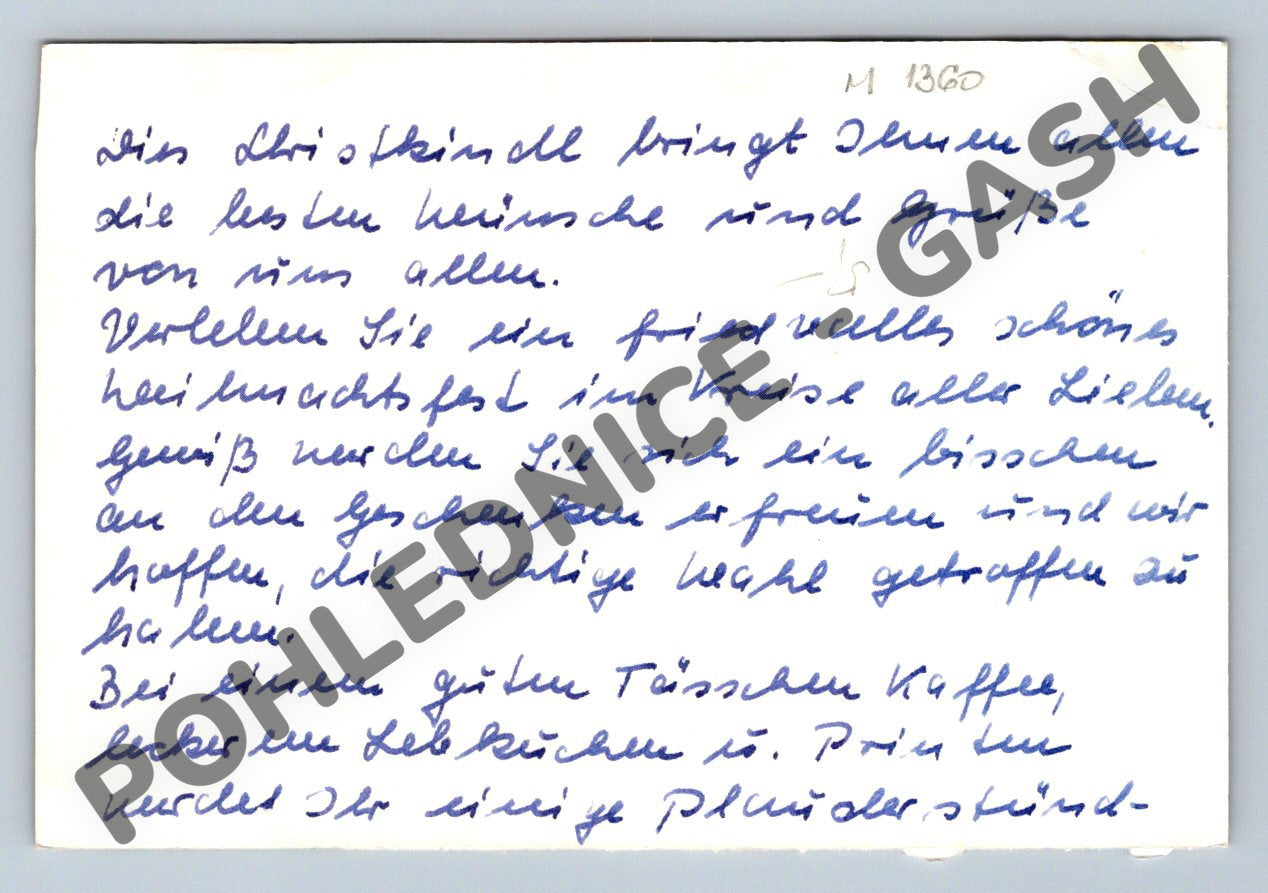 M 1360
Dies Christkindl bringt Ihnen allen
die besten Wünsche und Grüße
von uns allen.
Verleben Sie ein friedvolles schönes
Weihnachtsfest im Kreise aller Lieben.
Gewiß werden Sie sich ein bisschen
an den Geschenken erfreuen und wir
hoffen, die richtige Wahl getroffen zu
haben.
Bei einem guten Tässchen Kaffee,
leckerem Lebkuchen u. Printen
werdet Ihr einige Plauderstünd-
POHLEDNICE - GASH